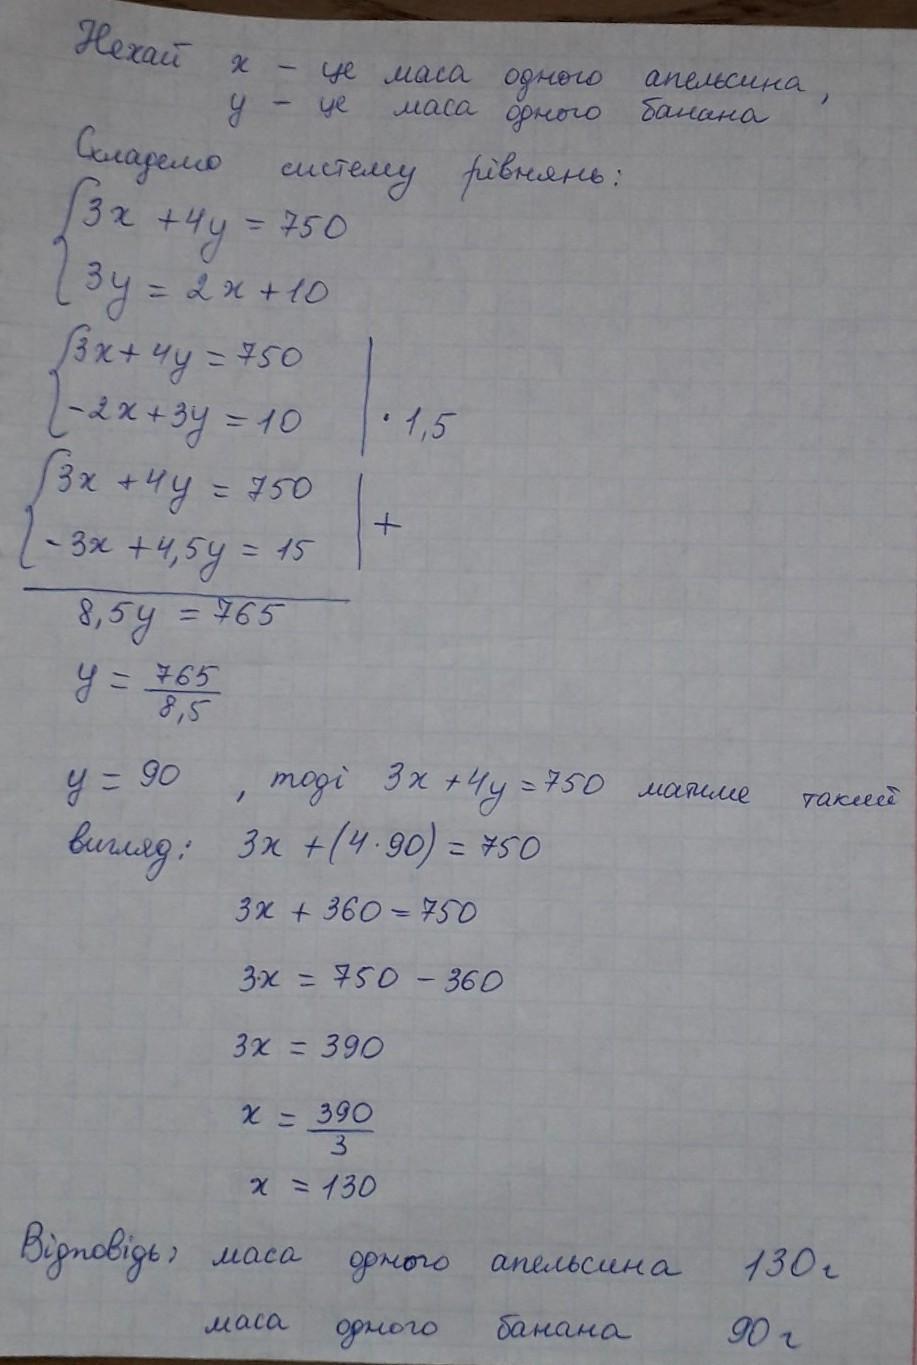 Нехай x – це маса одного апельсина,
y – це маса одного банана
Складемо систему рівнянь:
3x + 4y = 750
3y = 2x + 10
3x + 4y = 750
-2x + 3y = 10 | · 1,5
3x + 4y = 750
-3x + 4,5y = 15 | +
8,5y = 765
y = 765/8,5
y = 90 , тоді 3x + 4y = 750 матиме такий
вигляд: 3x + (4·90) = 750
3x + 360 = 750
3x = 750 – 360
3x = 390
x = 390/3
x = 130
Відповідь: маса одного апельсина 130 г
маса одного банана 90 г